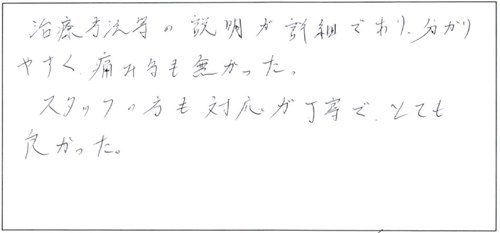 治療手法等の説明が詳細であり、分かり
やすく、痛み等も無かった。
スタッフの方も対応が丁寧で、とても
良かった。